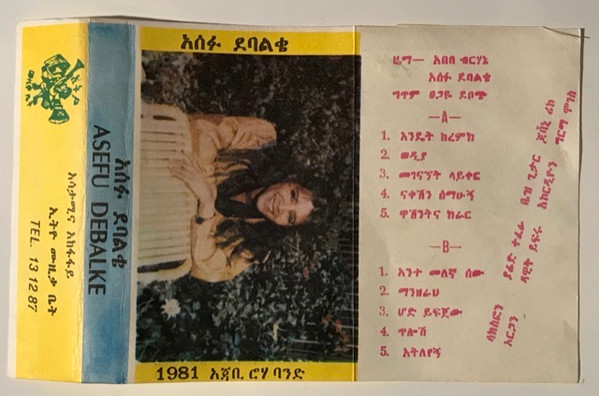 አሰፉ ደባልቄ
አሰፉ ደባልቄ
ASEFU DEBALKE
አሳታሚና አከፋፋይ
ኢትዮ ሙዚቃ ቤት
TEL. 13 12 87
1981 አጃቢ ሮሃ ባንድ
ዜማ— አበበ ብርሃኔ
አሰፉ ደባልቄ
ግጥም ፀጋዬ ደቦጭ
—A—
1. እንዴት ከረምክ
2. ወዲያ
3. መገናኘት ላይቀር
4. ናቀሽን ሰማሁኝ
5. ዋሽንትና ክራር
—B—
1. አንተ መለኛ ሰው
2. ማንዘራሀ
3. ሆድ ይፍጀው
4. ጥሎሽ
5. አትለየኝ
ሳክስፎን ያሬድ ተፈራ ቤዝ ጊታር ጆቫኒ ሪኮ
ኦርጋን ዳዊት ይፍሩ አኮርዲዮን ግርማ ሞገስ